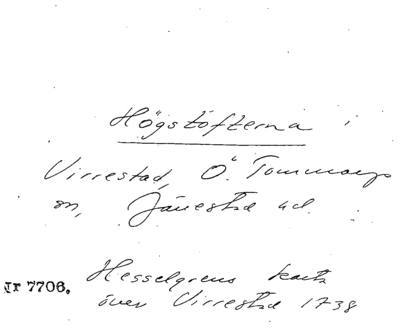 Högstofterna i
Virrestad, Ö. Tommarps
sn, Järrestad hd.
Hesselgrens karta
Jr 7706.
över Virrestad 1738